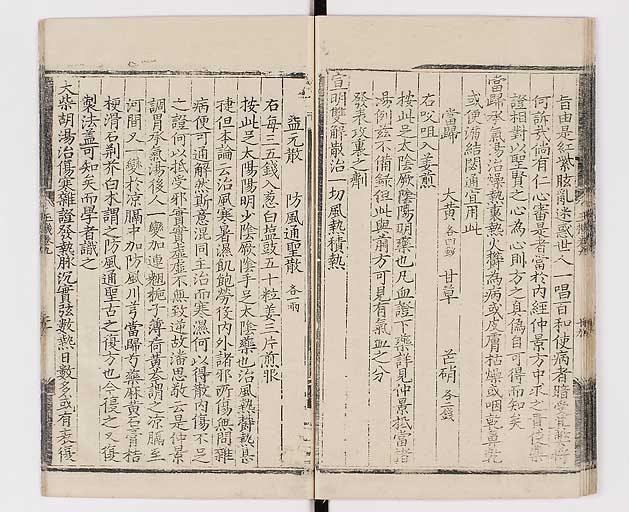 皆由是紅紫眩亂迷惑世人一唱百和使病者
何訴我倘有仁心審是者當於內經仲景方中求之責使藥
證相對以聖賢之心為心則方之真偽自可得而知矣
當歸承氣湯治燥熱裏熱火欝為病或皮膚枯燥或咽乾鼻乾
或便溺結閟通宜用此
當歸 大黃各四錢 甘草 芒硝各二錢
右㕮咀入姜煎
按此足太陰厥陰陽明藥也凡血證下藥詳見仲景抵當諸
湯例茲不備錄但此與前方可見有氣血之分
發表攻裏之劑
宣明雙解散治一切風熱積熱
益元散 防風通聖散各一兩
右每三五錢入葱白塩豉五十粒姜三片煎服
按此足太陽陽明少陰厥陰手足太陰藥也治風熱欝熱甚
捷但本論云治風寒暑濕飢飽勞役內外諸邪所傷無問雜
病便可通解然斯意混同主治而寒濕何以得散內傷不足
之證何以抵受邪實實虛虛不無致逆故潘思敬云是仲景
調胃承氣湯後人一變加連翹梔子薄荷黃芩謂之凉膈至
河間又一變於凉膈中加防風川芎當歸芍藥麻黃石膏桔
梗滑石荊芥白朮謂之防風通聖古之復方也今復之又復
製法蓋可知矣而學者識之
大柴胡湯治傷寒雜證發熱脉沉實弦數熱日數多或有表復